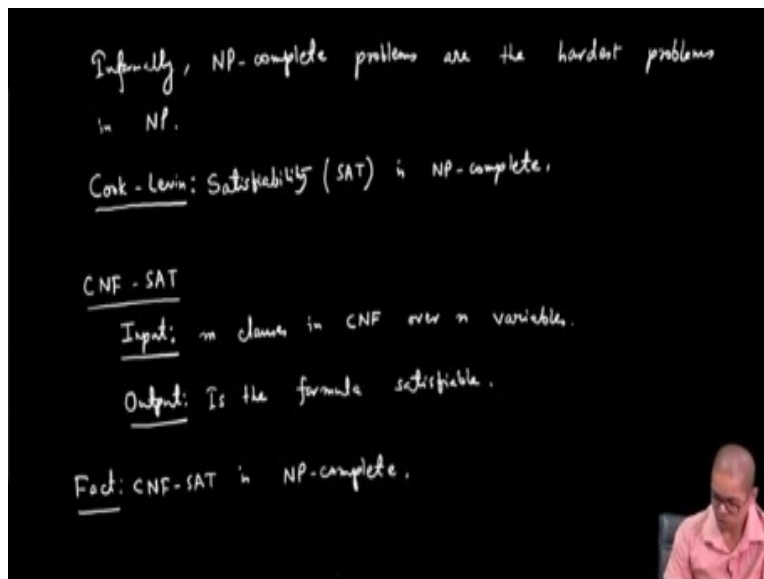 Informally, NP-complete problems are the hardest problems
in NP.
Cook-Levin: Satisfiability (SAT) is NP-complete.
CNF-SAT
Input: m clauses in CNF over n variables.
Output: Is the formula satisfiable.
Fact: CNF-SAT is NP-complete.